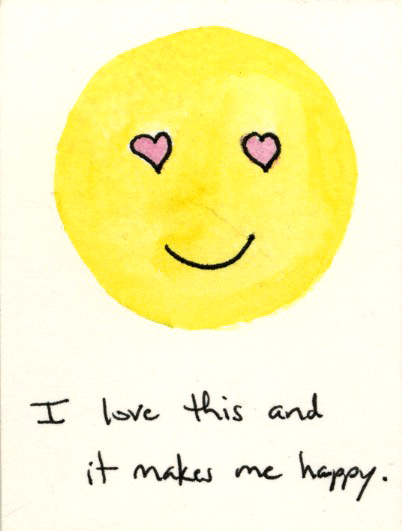 I love this and
it makes me happy.